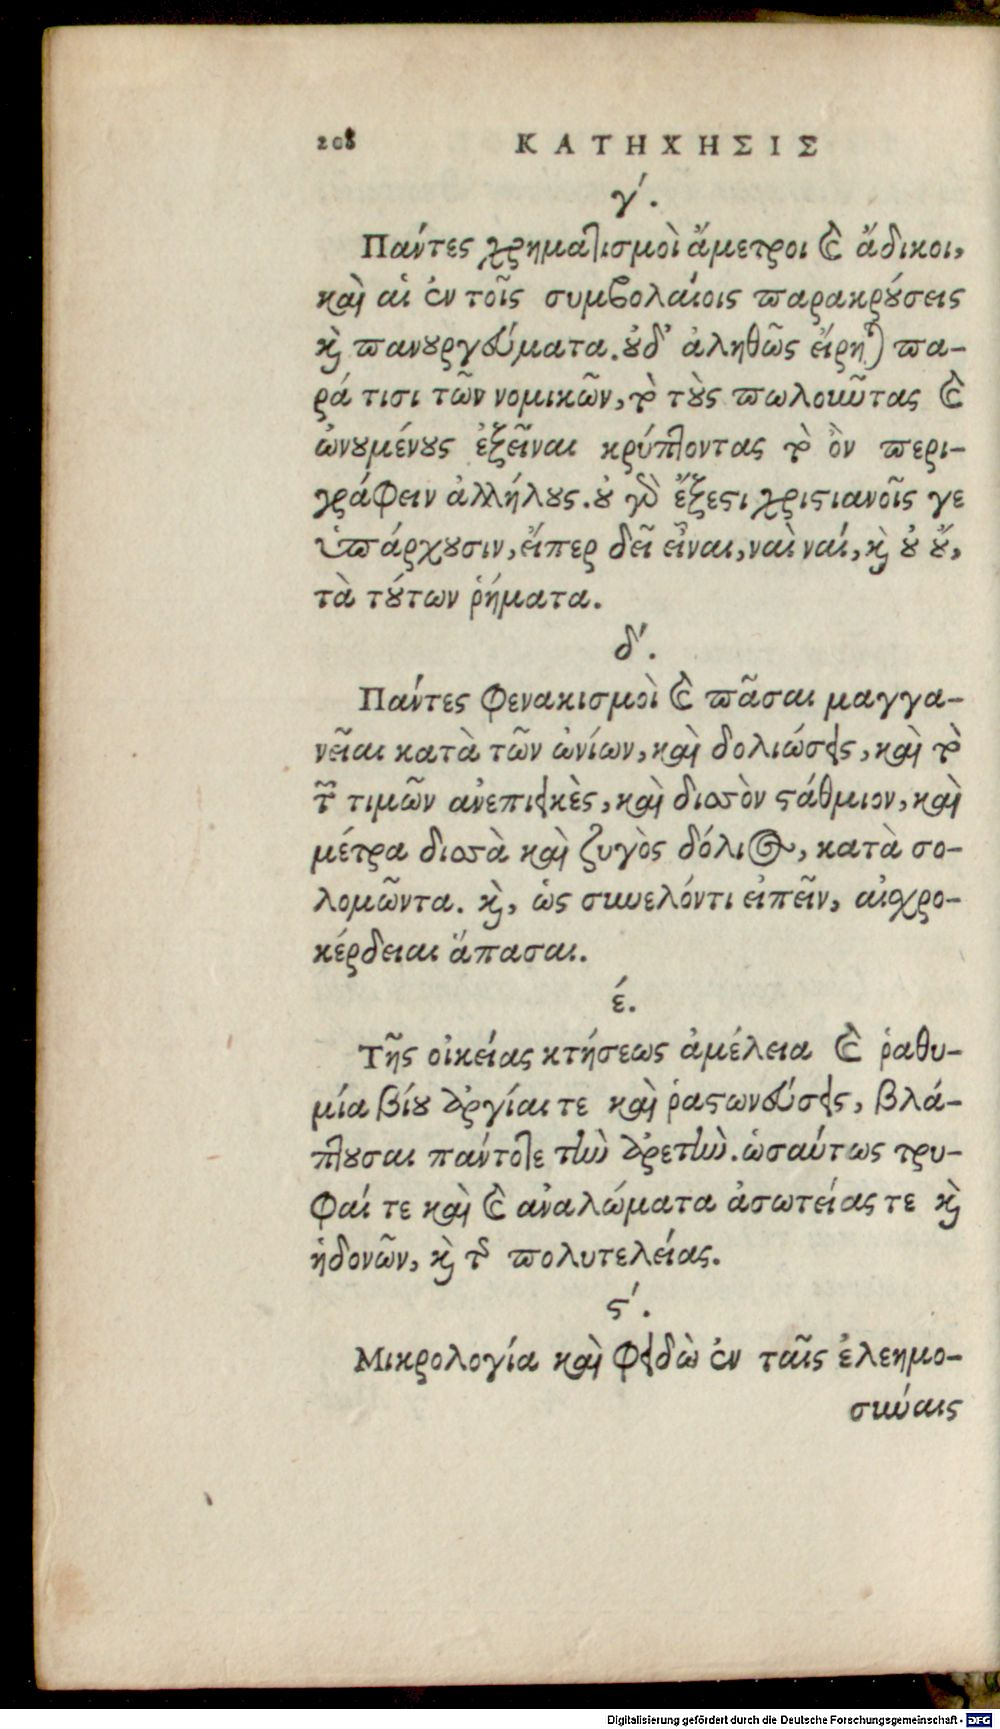 208 ΚΑΤΗΧΗΣΙΣ
γ΄.
Πάντες χρηματισμοὶ ἄμετροι καὶ ἄδικοι,
καὶ αἱ ἐν τοῖς συμβολαίοις παρακρούσεις
καὶ πανουργεύματα. οὐδ' ἀληθῶς εἴρηται πα-
ρά τισι τῶν νομικῶν, τὸ τοὺς πωλοῦντας καὶ
ὠνουμένους ἐξεῖναι κρύπτοντας τὸ ὂν περι-
γράφειν ἀλλήλους. οὐ γὰρ ἔξεστι χριστιανοῖς γε
ὑπάρχουσιν, εἴπερ δεῖ εἶναι, ναὶ ναί, καὶ οὐ οὔ,
τὰ τούτων ῥήματα.
δ΄.
Πάντες φενακισμοὶ καὶ πᾶσαι μαγγα-
νεῖαι κατὰ τῶν ὠνίων, καὶ δολιώσεις, καὶ τὸ
τῶν τιμῶν ἀνεπιεικὲς, καὶ δισσὸν στάθμιον, καὶ
μέτρα δισσὰ καὶ ζυγὸς δόλιος, κατὰ σο-
λομῶντα. καὶ, ὡς συνελόντι εἰπεῖν, αἰσχρο-
κέρδειαι ἅπασαι.
έ.
Τῆς οἰκείας κτήσεως ἀμέλεια καὶ ῥαθυ-
μία βίου ἀργίαι τε καὶ ῥαστωνεύσεις, βλά-
πτουσαι πάντοτε τὴν ἀρετὴν. ὡσαύτως τρυ-
φαί τε καὶ τὰ ἀναλώματα ἀσωτείας τε καὶ
ἡδονῶν, καὶ τῆς πολυτελείας.
ϛ΄.
Μικρολογία καὶ φειδὼ ἐν ταῖς ἐλεημο-
σύναις
Digitalisierung gefördert durch die Deutsche Forschungsgemeinschaft - DFG